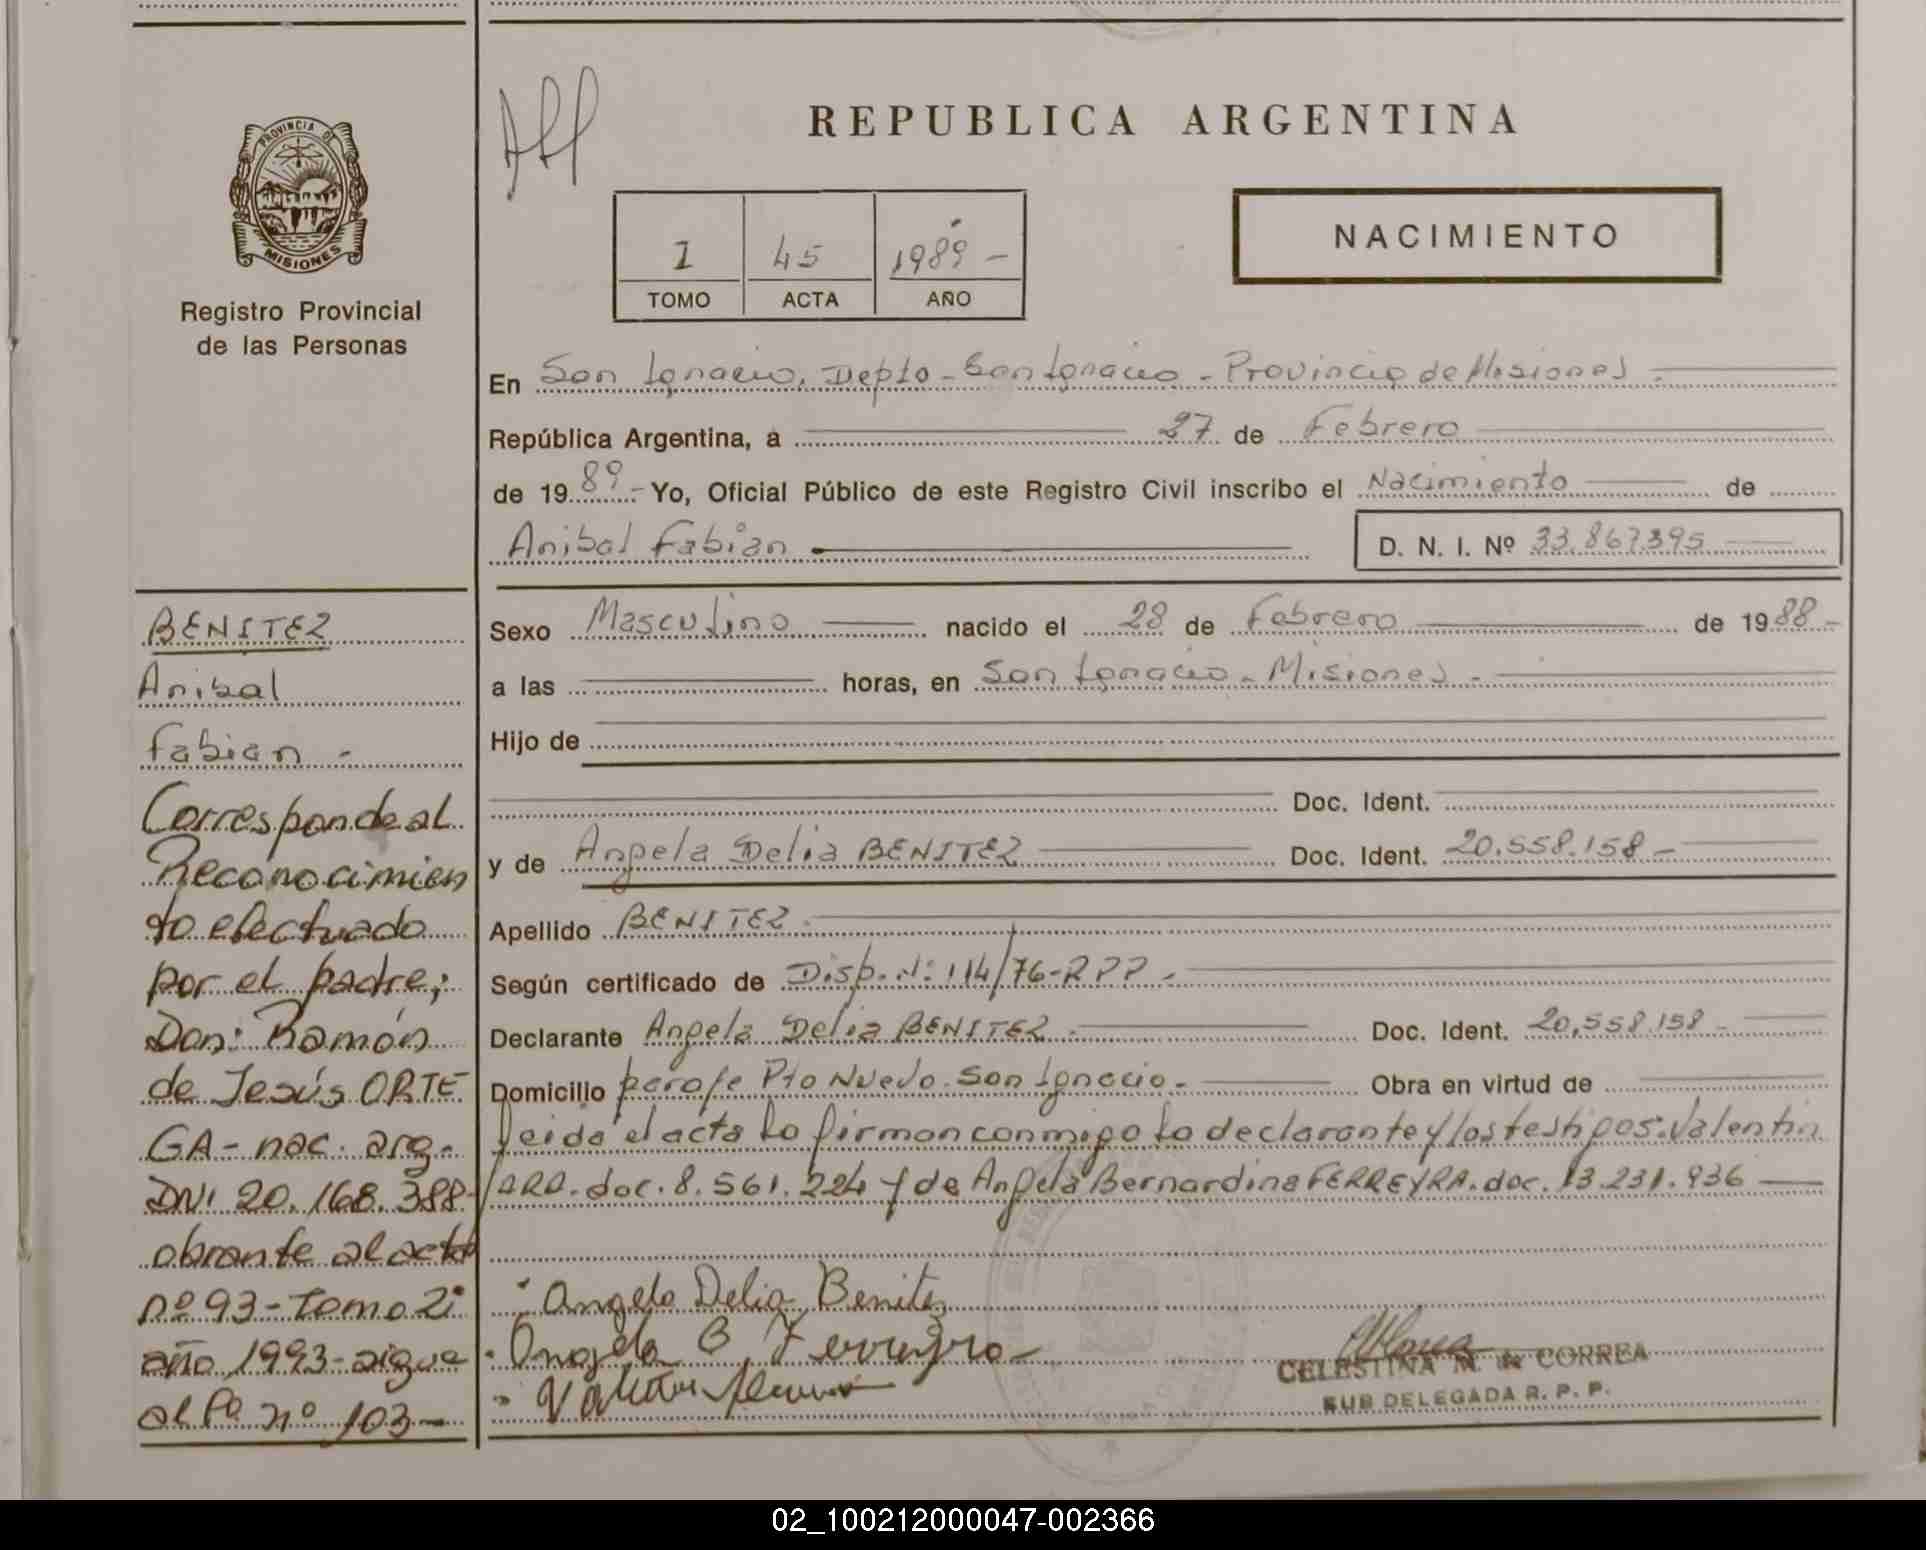 PROVINCIA DE
MISIONES
Registro Provincial
de las Personas
BENITEZ
Anibal
Fabian -
Corresponde al
Reconocimien
to efectuado
por el padre;
Don: Ramón
de Jesús ORTE
GA - nac. arg.
DNI 20.168.388-
obrante al acta
nº 93 - Tomo 2º
año 1993 - sigue
al Fº nº 103 -
REPUBLICA ARGENTINA
1 45 1989 -
TOMO ACTA AÑO
NACIMIENTO
En San Ignacio, Depto - San Ignacio - Provincia de Misiones -
República Argentina, a 27 de Febrero
de 1989 - Yo, Oficial Público de este Registro Civil inscribo el Nacimiento de
Anibal Fabián D. N. I. Nº 33.867.395
Sexo Masculino nacido el 28 de Febrero de 1988 -
a las horas, en San Ignacio - Misiones -
Hijo de
Doc. Ident.
y de Angela Delia BENITEZ Doc. Ident. 20.558.158 -
Apellido BENITEZ -
Según certificado de Disp. Nº 114/76 - RPP -
Declarante Angela Delia BENITEZ - Doc. Ident. 20.558.158 -
Domicilio paraje Pto Nuevo - San Ignacio - Obra en virtud de
leida el acta lo firman conmigo la declarante y los testigos: Valentin
doc. 8.561.224 y de Angela Bernardina FERREYRA. doc. 13.231.936
Angela Delia Benitez
Angela B Ferreyra
CELESTINA M. de CORREA
SUB DELEGADA R. P. P.
02_100212000047-002366